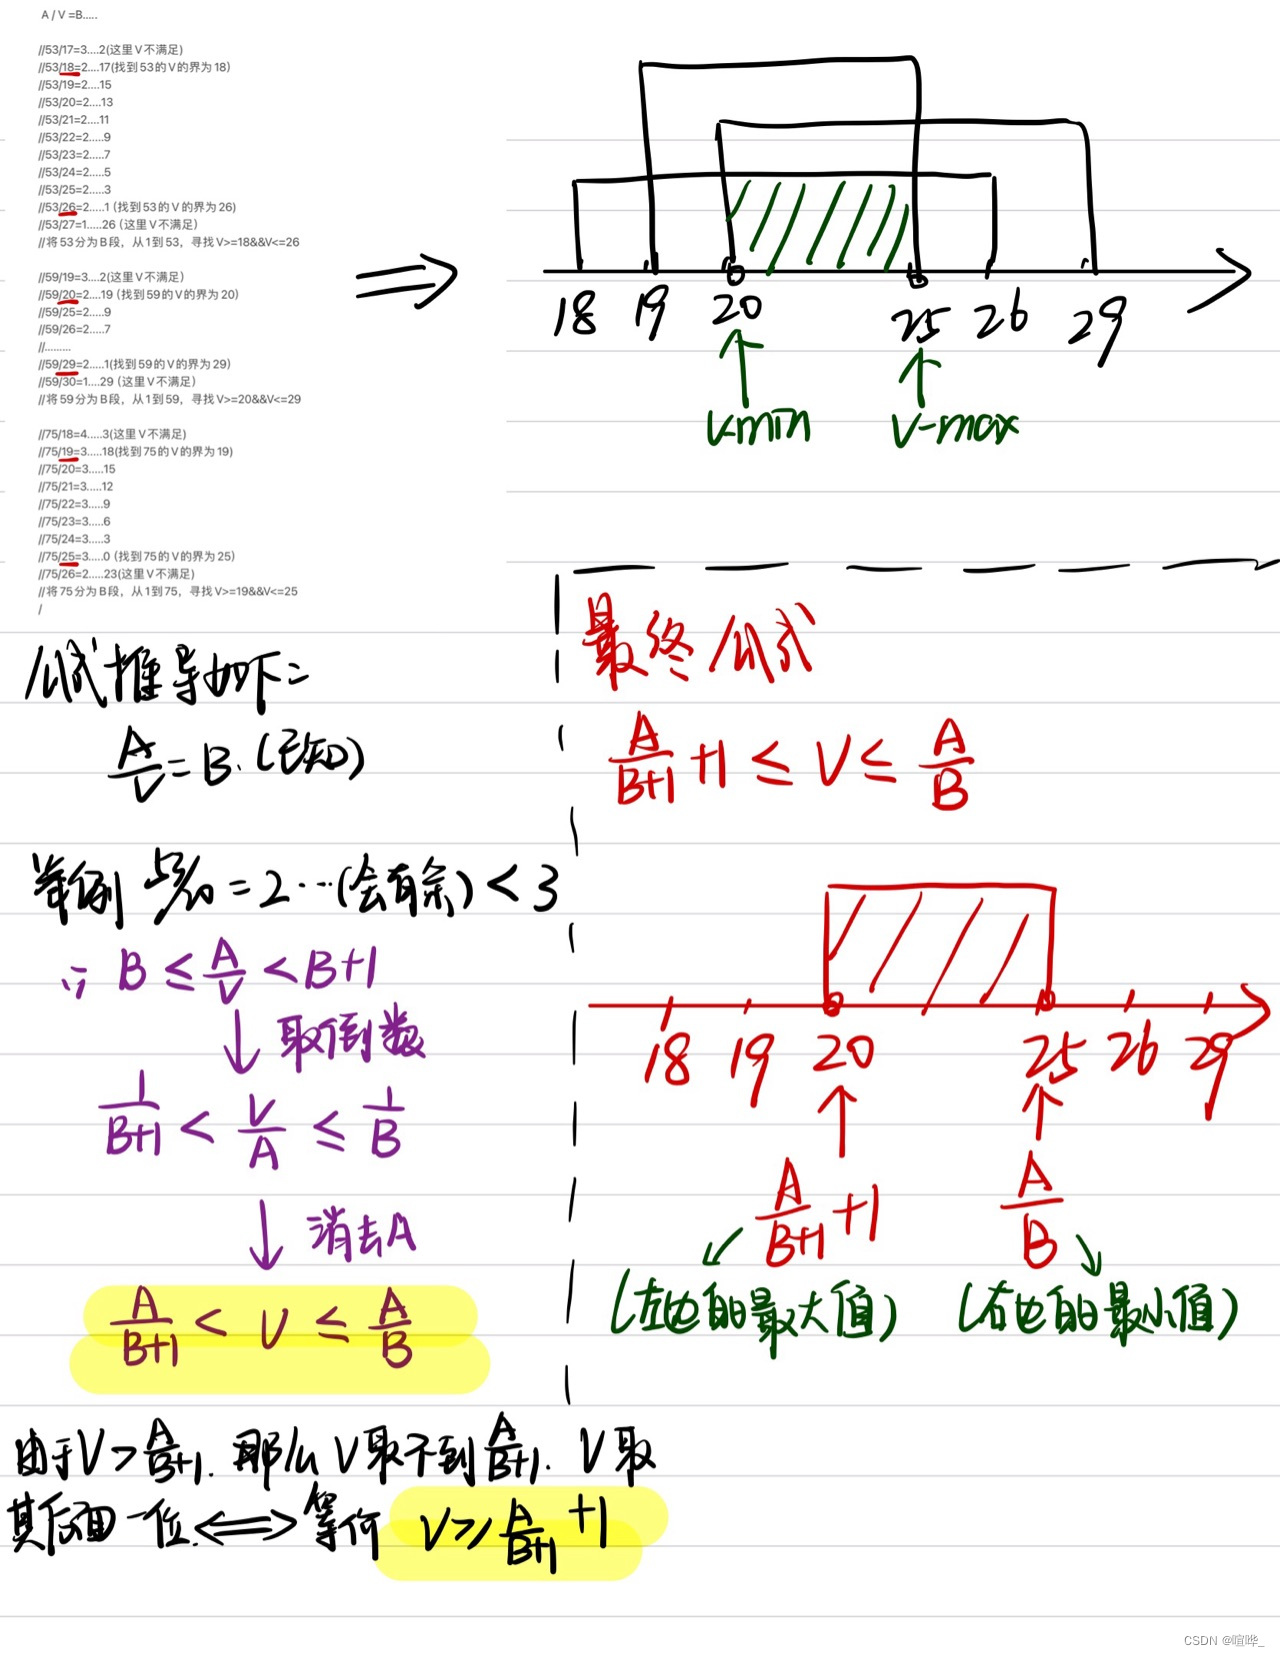 A / V =B.....
//53/17=3....2(这里V不满足)
//53/18=2....17(找到53的V的界为18)
//53/19=2....15
//53/20=2....13
//53/21=2....11
//53/22=2.....9
//53/23=2.....7
//53/24=2.....5
//53/25=2.....3
//53/26=2.....1 (找到53的V的界为26)
//53/27=1.....26 (这里V不满足)
//将53分为B段，从1到53，寻找V>=18&&V<=26
//59/19=3....2(这里V不满足)
//59/20=2....19 (找到59的V的界为20)
//59/25=2.....9
//59/26=2.....7
//.........
//59/29=2.....1(找到59的V的界为29)
//59/30=1....29 (这里V不满足)
//将59分为B段，从1到59，寻找V>=20&&V<=29
//75/18=4.....3(这里V不满足)
//75/19=3.....18(找到75的V的界为19)
//75/20=3.....15
//75/21=3.....12
//75/22=3.....9
//75/23=3.....6
//75/24=3.....3
//75/25=3.....0 (找到75的V的界为25)
//75/26=2.....23(这里V不满足)
//将75分为B段，从1到75，寻找V>=19&&V<=25
/
18 19 20 25 26 29
V-min V-max
公式推导如下=
A/V=B.(已知)
举例 53/20=2…(会有余)<3
∵ B≤A/V<B+1
↓取倒数
1/B+1<V/A≤1/B
↓消去A
A/B+1<V≤A/B
由于V>A/B+1.那么V取不到A/B+1.V取
其后面一位.⟺等价 V≥A/B+1 +1
最终公式
A/B+1 +1≤V≤A/B
18 19 20 25 26 29
A/B+1 +1 A/B
(左边的最大值) (右边的最小值)
CSDN @喧哗_